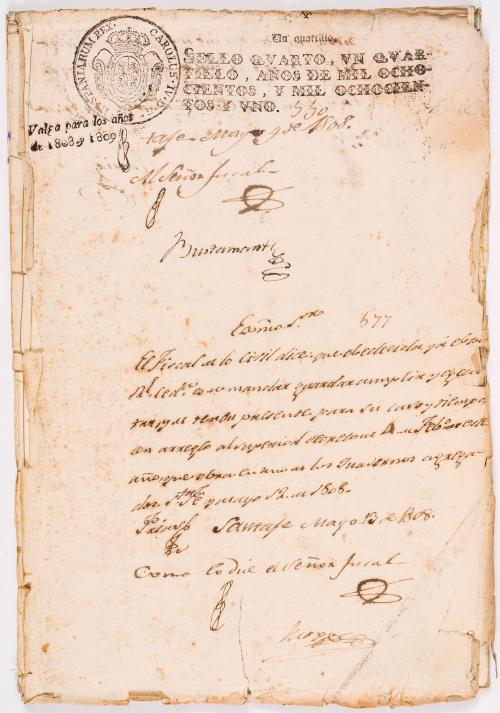 HISPANIARUM REX CAROLUS IV D G
Un quartillo.
SELLO QVARTO, VN QVAR-
TILLO, AÑOS DE MIL OCHO-
CIENTOS, Y MIL OCHOCIEN-
TOS Y VNO.
530
Valga para los años
de 1808 y 1809
Mayo 9 de 1808.
Al Señor Fiscal
Bustamante
Exmo Sor
577
El Fiscal de lo Civil dice: que obedecida ya esta
Rl Cedª se mandar guardar cumplir y ejecu
tar y q.e se tenga presente para su caso y tiempo
con arreglo al superior decreto de 4 de Febº de este
año, que obra en uno de los Quadernos agrega
dos. Stafe y Mayo 12 de 1808.
Santafe Mayo 13 de 1808.
Como lo dice el Señor Fiscal